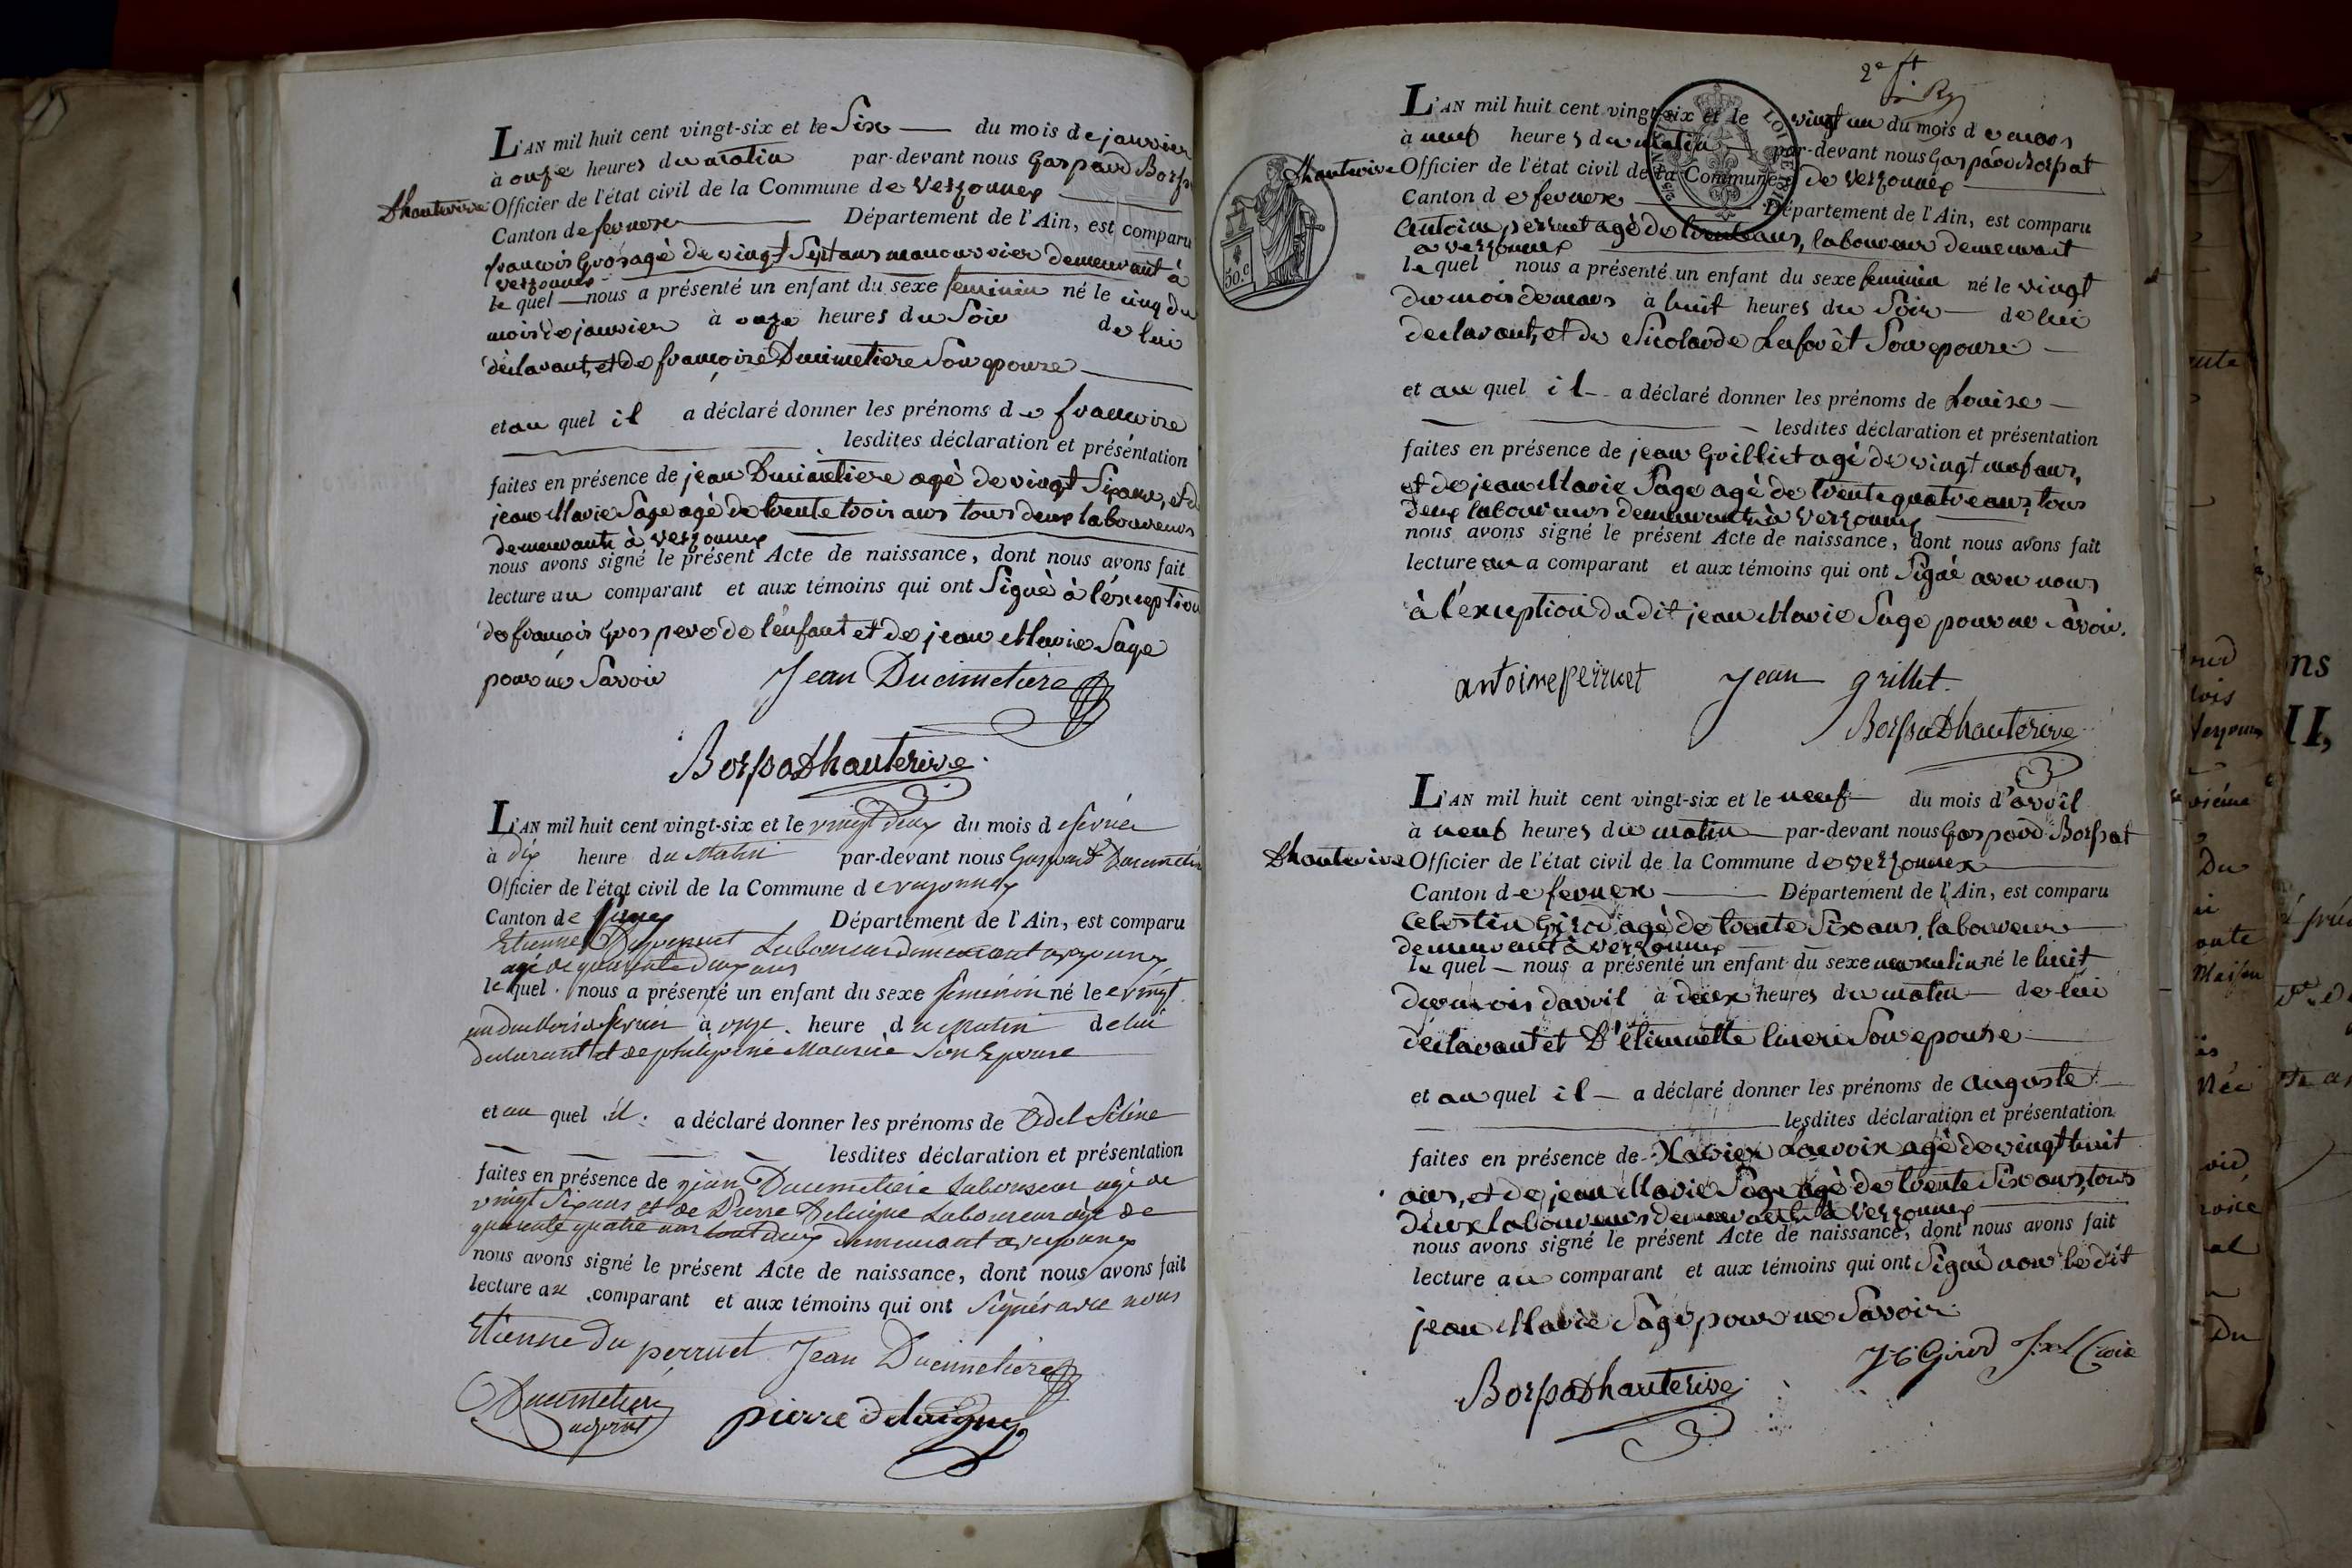 L'AN mil huit cent vingt-six et le Six du mois de janvier
à onze heures du matin par-devant nous Gaspard Borsat
Dhauterive Officier de l'état civil de la Commune de Versonnex
Canton de fernex Département de l'Ain, est comparu
francois Gros agé de vingt Sept ans manouvrier demeurant à
versonnex
le quel nous a présenté un enfant du sexe feminin né le cinq du
mois de janvier à onze heures du Soir de lui
déclarant, et de françoise Ducimetiere Son epouse
et au quel il a déclaré donner les prénoms de francoise
lesdites déclaration et présentation
faites en présence de jean Ducimetiere agé de vingt Six ans, et de
jean Marie Sage agé de trente trois ans tous deux laboureurs
demeurants à versonnex
nous avons signé le présent Acte de naissance, dont nous avons fait
lecture au comparant et aux témoins qui ont Signé à l'exception
de francois Gros pere de l'enfant et de jean Marie Sage
pour ne Savoir Jean Ducimetiere
Borsat Dhauterive
L'AN mil huit cent vingt-six et le vingt deux du mois de fevrier
à dix heure du Matin par-devant nous Gaspard Ducimetier
Officier de l'état civil de la Commune de
Canton de Département de l'Ain, est comparu
Etienne Duperrut Laboureur demeurant a
agé de quarente deux ans
le quel nous a présenté un enfant du sexe feminin né le vingt
un du Mois de fevrier à onze heure du Matin de lui
declarant et de Son Epouse
et au quel il a déclaré donner les prénoms de
lesdites déclaration et présentation
faites en présence de jean Ducimetiere Laboureur agé de
vingt Six ans et de Pierre Delaigue Laboureur agé de
quarente quatre ans tout deux demeurant a
nous avons signé le présent Acte de naissance, dont nous avons fait
lecture au comparant et aux témoins qui ont Signés avec nous
Etienne du perrut Jean Ducimetiere
Ducimetier pierre delaigue
adjoint
2e
L'AN mil huit cent vingt-six et le vingt un du mois de mars
à neuf heures du matin par-devant nous Gaspard Borsat
Dhauterive Officier de l'état civil de la Commune de versonnex
Canton de fernex Département de l'Ain, est comparu
Antoine perruet agé de trente ans, laboureur demeurant
a versonnex
le quel nous a présenté un enfant du sexe feminin né le vingt
du mois de mars à huit heures du Soir de lui
declarant, et de Nicolarde Laforêt Son epouse
et au quel il a déclaré donner les prénoms de Louise
lesdites déclaration et présentation
faites en présence de jean Grilliet agé de vingt neuf ans,
et de jean Marie Sage agé de trente quatre ans, tous
deux laboureurs demeurants à versonnex
nous avons signé le présent Acte de naissance, dont nous avons fait
lecture au comparant et aux témoins qui ont Signé avec nous
à l'exception du dit jean Marie Sage pour ne Savoir.
antoine perruet Jean grillet
Borsat Dhauterive
50.c
L'AN mil huit cent vingt-six et le neuf du mois d'avril
à neuf heures du matin par-devant nous Gaspard Borsat
Dhauterive Officier de l'état civil de la Commune de versonnex
Canton de fernex Département de l'Ain, est comparu
Celestin Girod, agé de trente Six ans, laboureur
demeurant à versonnex
le quel nous a présenté un enfant du sexe masculin né le huit
du mois d'avril à deux heures du matin de lui
déclarant et D'étiennette Son epouse
et au quel il a déclaré donner les prénoms de auguste
lesdites déclaration et présentation
faites en présence de Xavier Lacroix agé de vingt huit
ans, et de jean Marie Sage agé de trente Six ans, tous
deux laboureurs demeurants à versonnex
nous avons signé le présent Acte de naissance, dont nous avons fait
lecture au comparant et aux témoins qui ont Signé non le dit
jean Marie Sage pour ne Savoir
J C Girod
Borsat Dhauterive